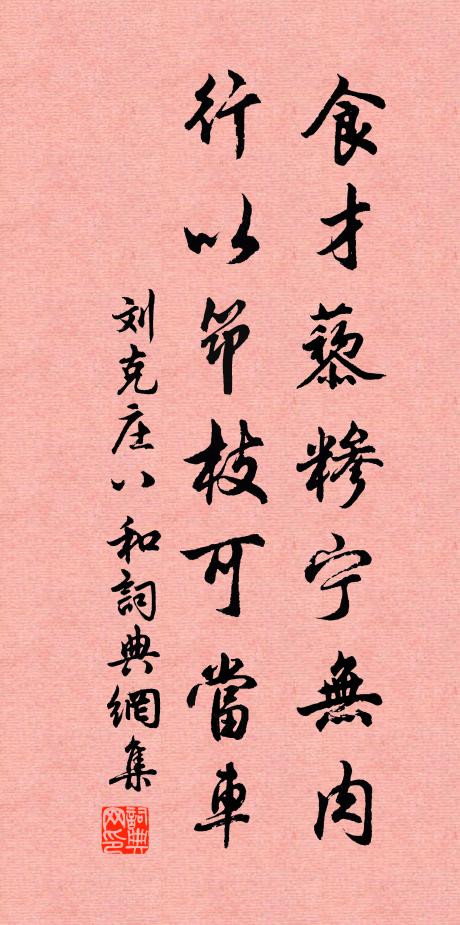 食才藜糁宁無肉
行以笻枝可當車
刘克庄八和詞典網集
詞典网印